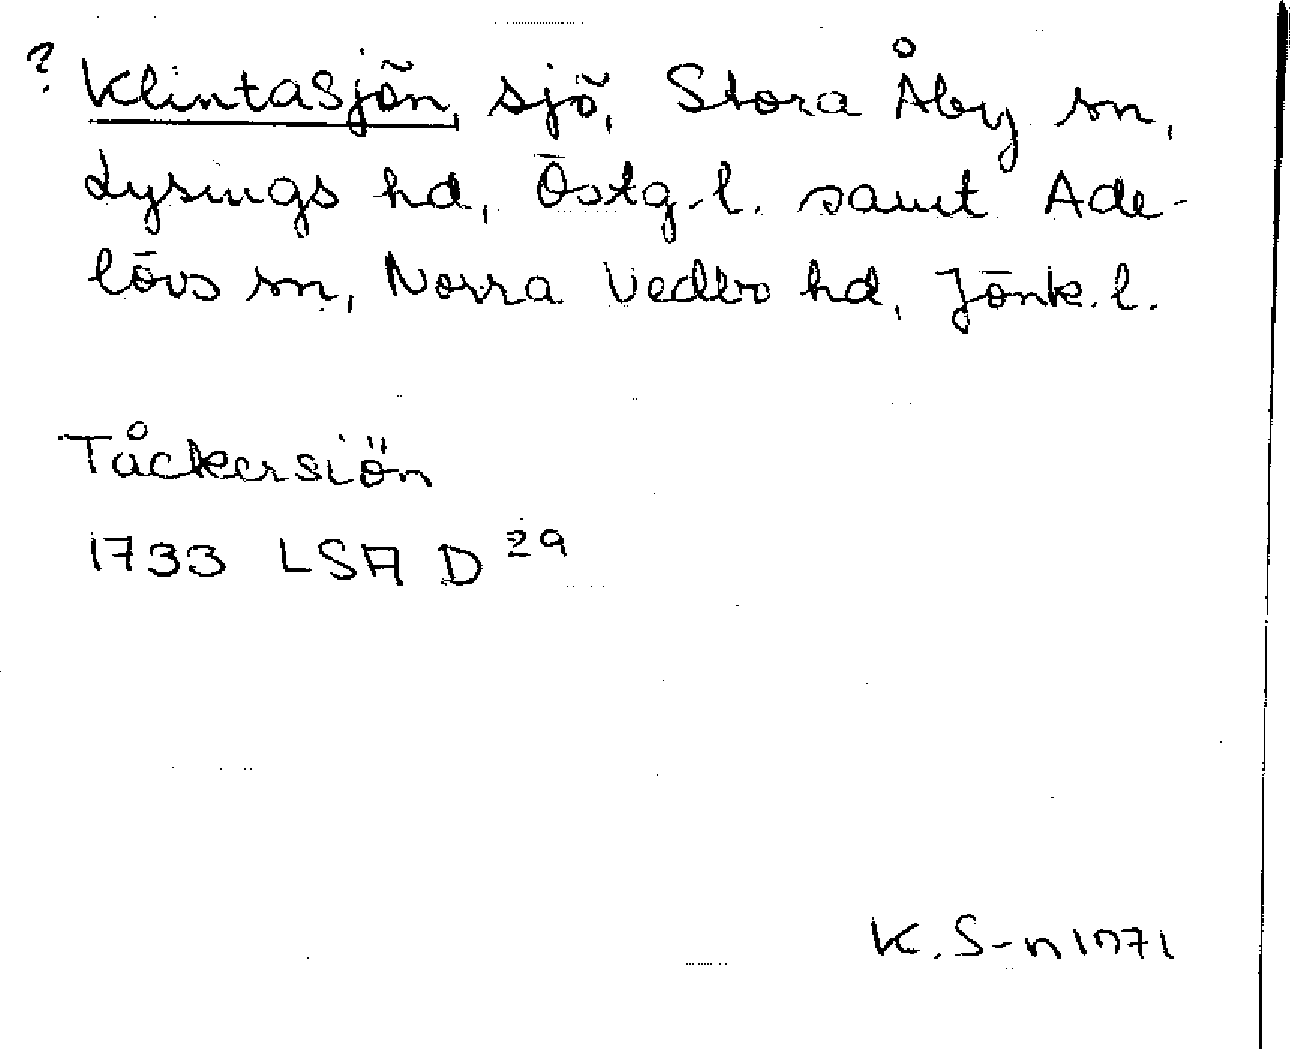 ? Klintasjön, sjö, Stora Åby sn,
Lysings hd, Östg.l. samt Ade-
lövs sn, Norra Vedbo hd, Jönk.l.
Tåckersiön
1733 LSA D 29
K.S-n 1971